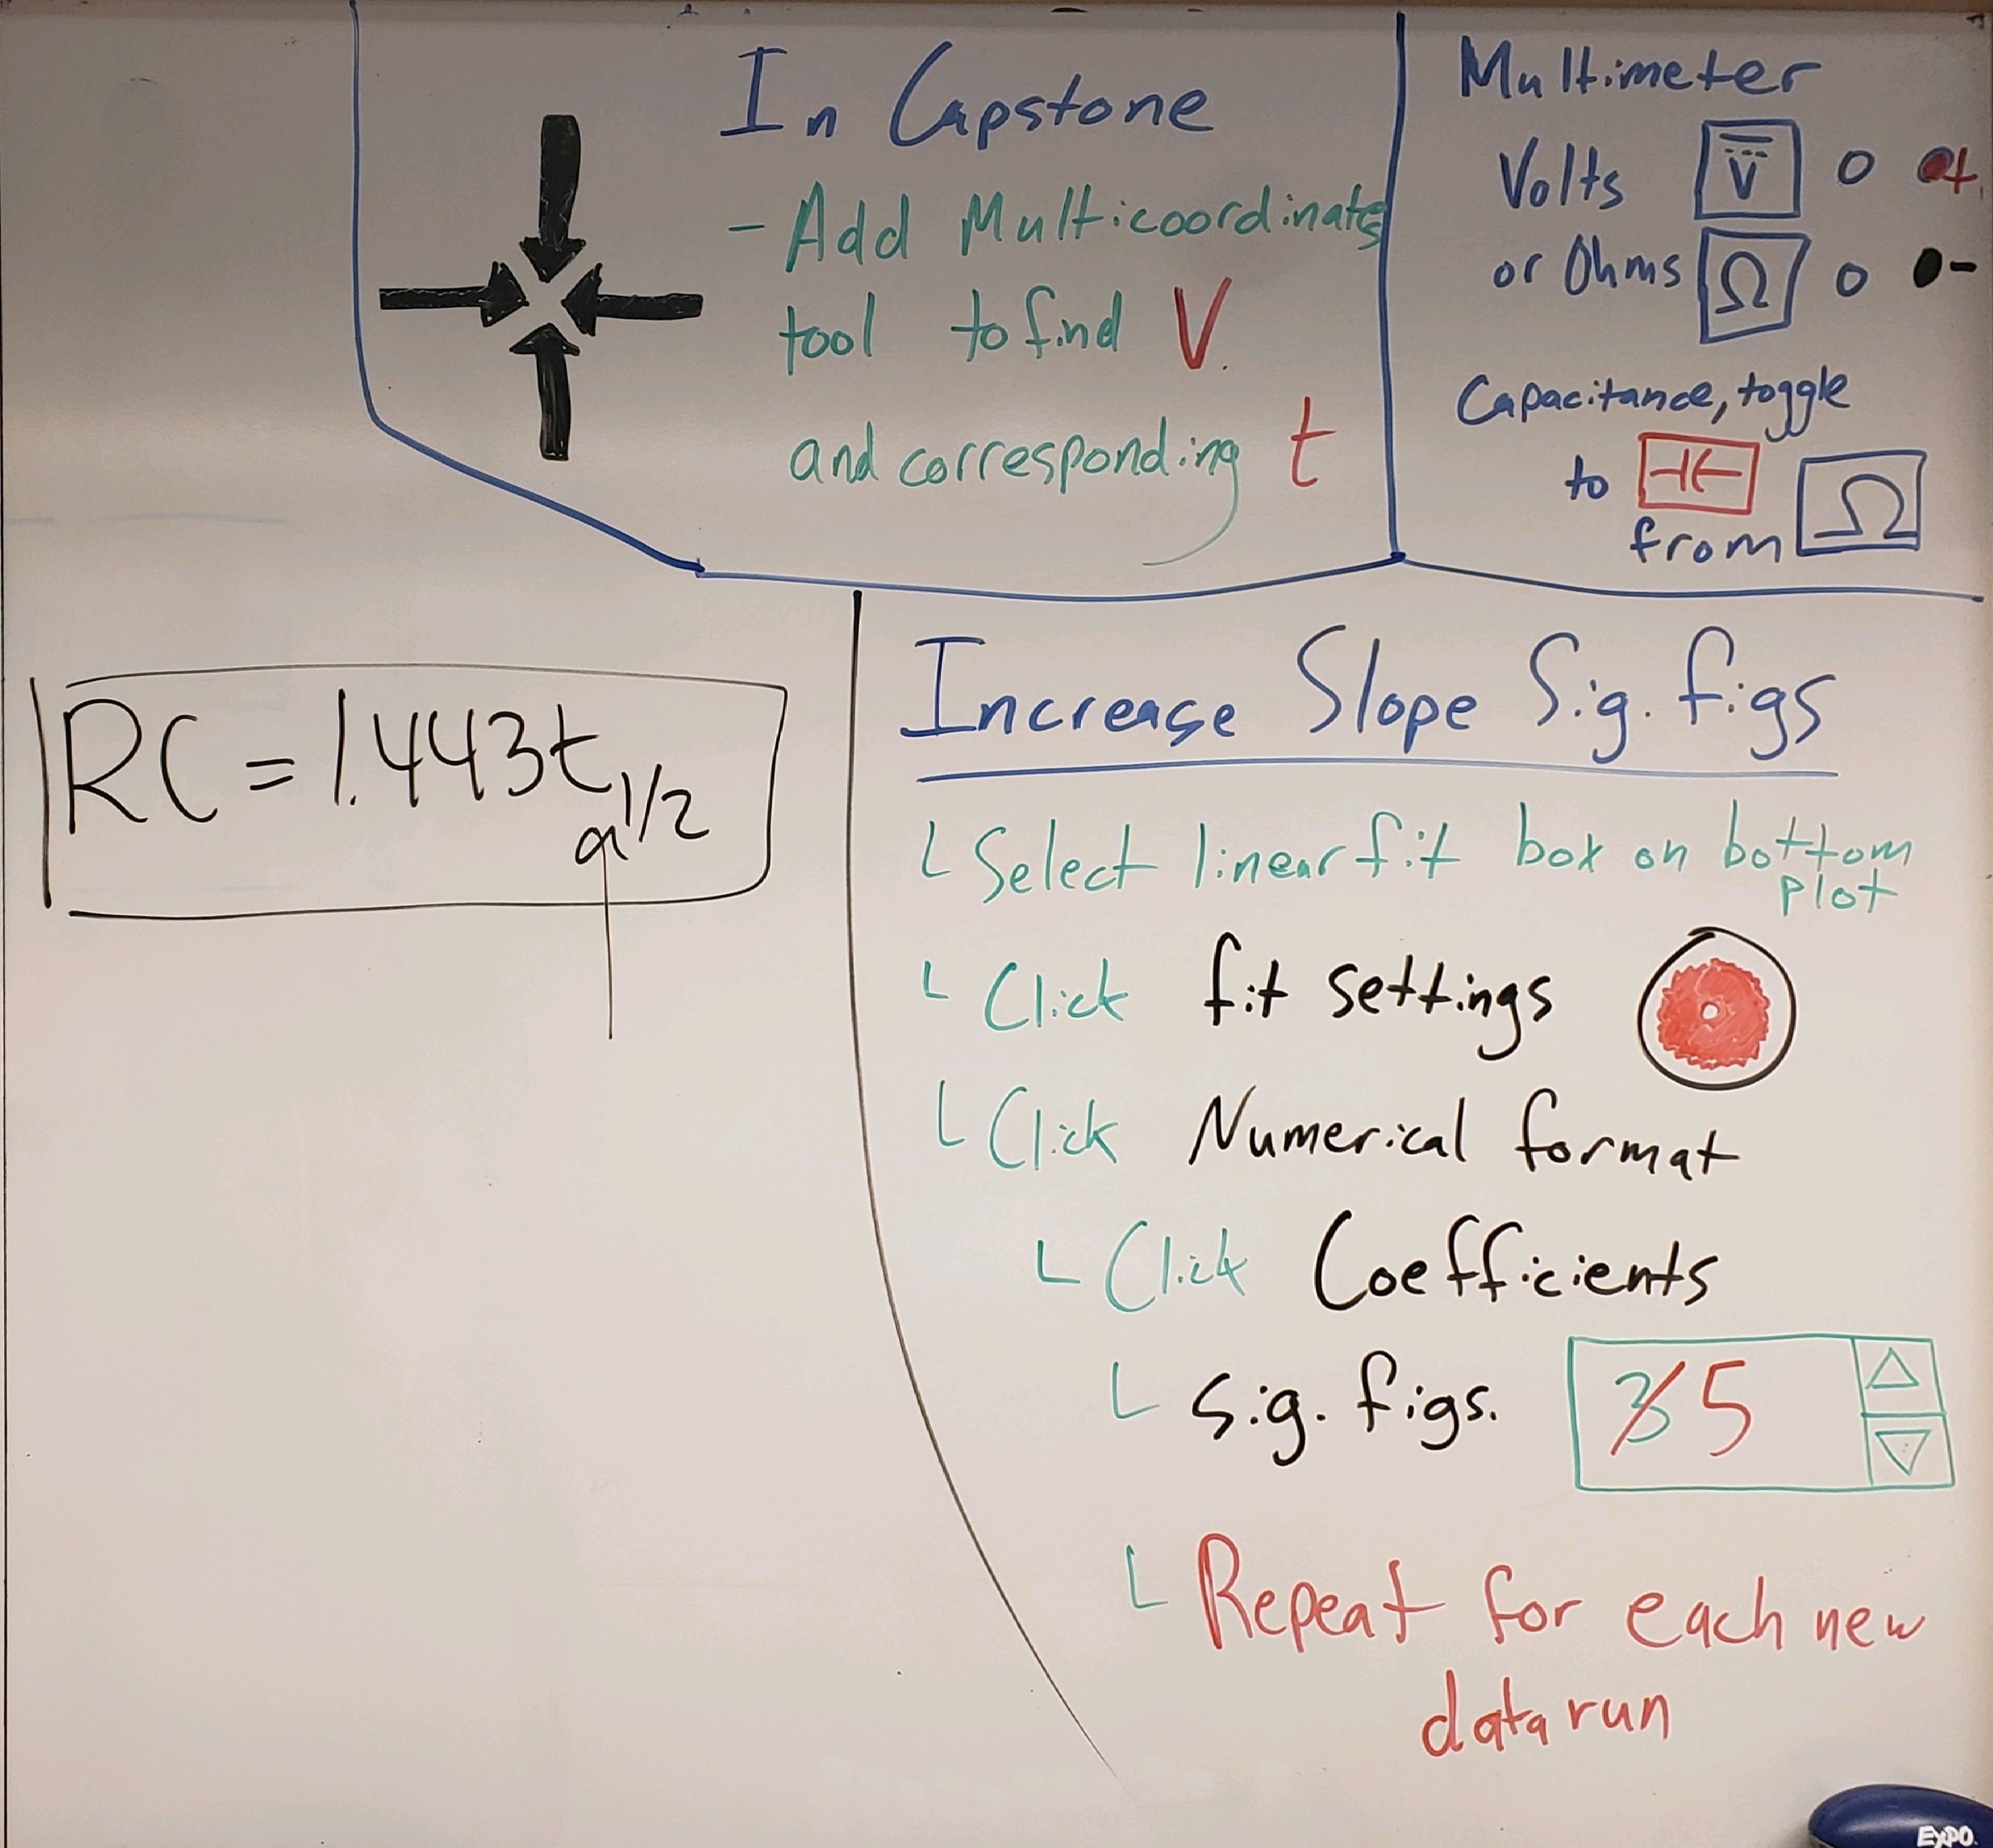 In Capstone
- Add Multicoordinate
tool to find V.
and corresponding t
Multimeter
Volts V +
or Ohms Ω -
Capacitance, toggle
to
from Ω
RC = 1.443t1/2
Increase Slope Sig. figs
Select linear fit box on bottom
plot
Click fit settings
Click Numerical format
Click Coefficients
Sig. figs. 3 5
Repeat for each new
data run
EXPO